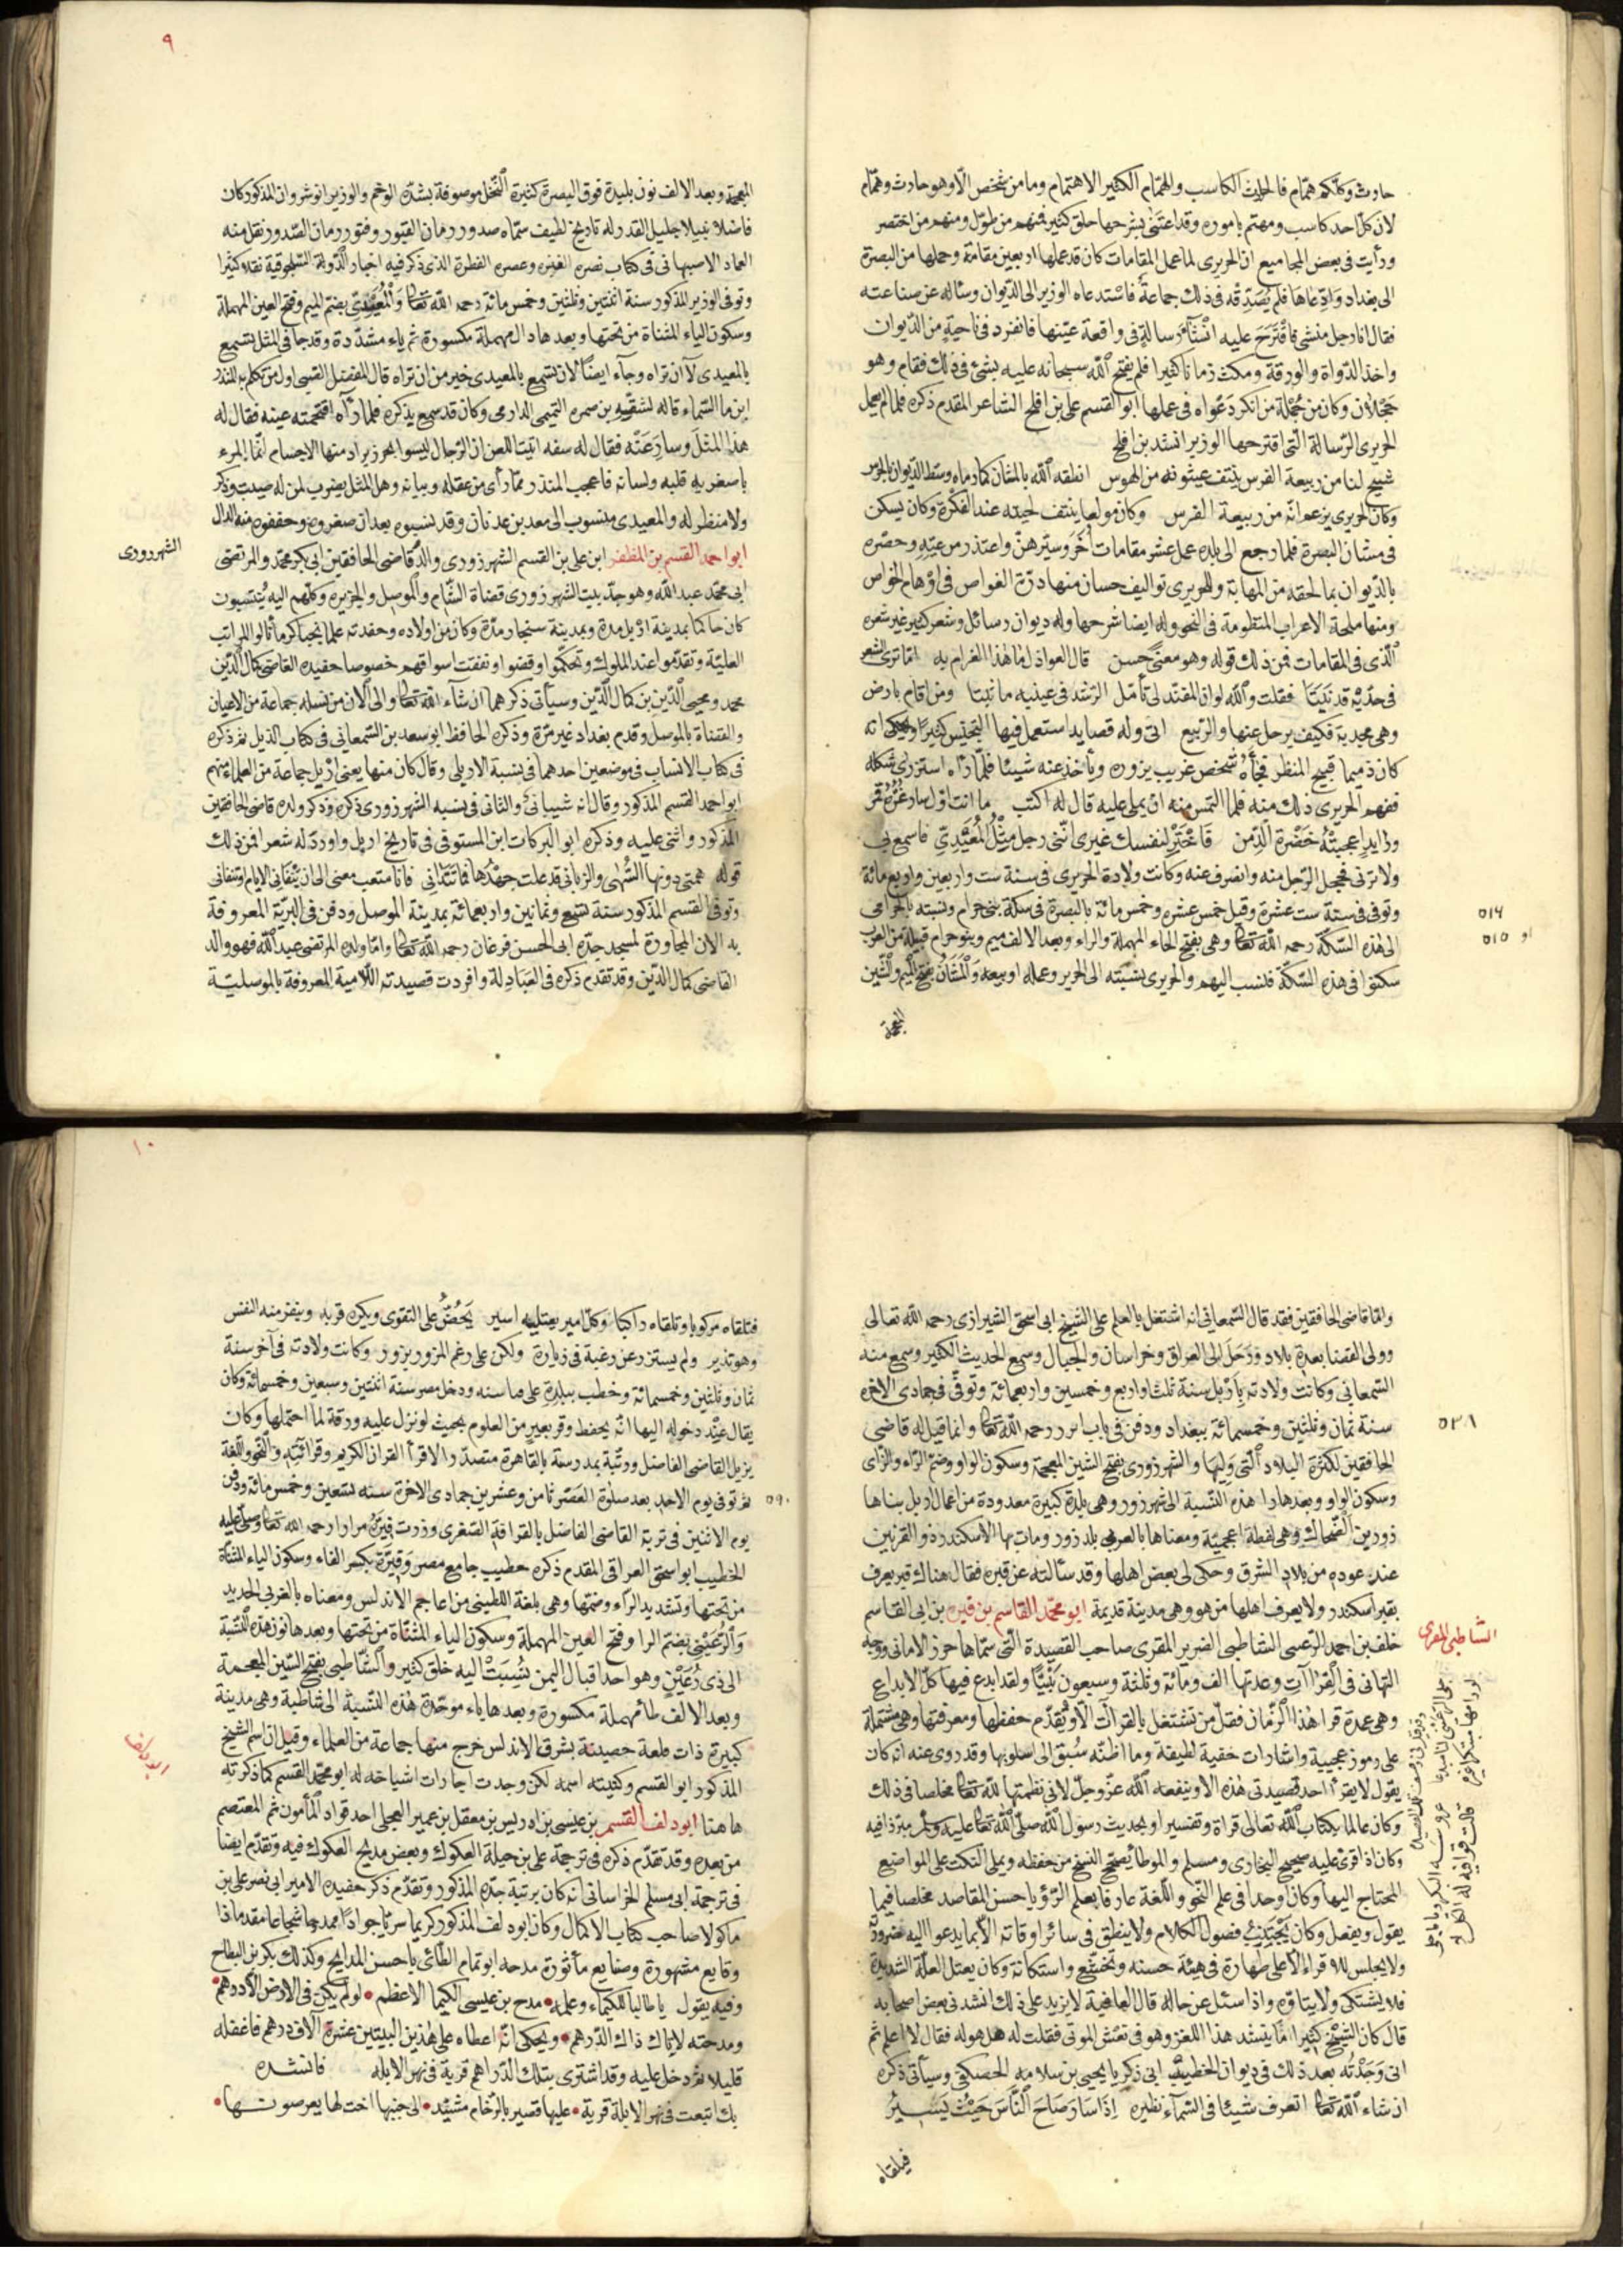 حارث وكلكم همام فالحارث الكاسب والهمام الكثير الاهتمام وما من شخص الا وهو حارث وهمام
لان كل احد كاسب ومهتم باموره وقد اعتنى بشرحها خلق كثير فمنهم من طول ومنهم من اختصر
ورأيت فى بعض المجاميع ان الحريرى لما عمل المقامات كان قد عملها اربعين مقامة وحملها من البصرة
الى بغداد وادعاها فلم يصدقه فى ذلك جماعة فاستدعاه الوزير الى الديوان وسأله عن صناعته
فقال انا رجل منشى فاقترح عليه انشآء رسالة فى واقعة عينها فانفرد فى ناحية من الديوان
واخذ الدواة والورقة ومكث زمانا كثيرا فلم يفتح الله سبحانه عليه بشئ فى ذلك فقام وهو
خجلان وكان من جملة من انكر دعواه فى عملها ابو القسم على بن افلح الشاعر المقدم ذكره فلما لم يعمل
الحريرى الرسالة التى اقترحها الوزير انشد بن افلح
شيخ لنا من ربيعة الفرس ينتف عثنونه من الهوس انطقه الله بالمشان كما رماه وسط الديوان بالخرس
وكان الحريرى يزعم انه من ربيعة الفرس وكان مولعا بنتف لحيته عند الفكرة وكان يسكن
فى مشان البصرة فلما رجع الى بلده عمل عشر مقامات أخر وسيرهن واعتذر من عيه وحصره
بالديوان بما لحقه من المهابة وللحريرى تواليف حسان منها درة الغواص فى اوهام الخواص
ومنها ملحة الاعراب المنظومة فى النحو وله ايضا شرحها وله ديوان رسائل وشعر كثير غير شعره
الذى فى المقامات فمن ذلك قوله وهو معنى حسن قال العواذل ما هذا الغرام به اما ترى الشعر
فى خديه قد نبتا فقلت والله لو ان المفند لى تأمل الرشد فى عينيه ما ثبتا ومن اقام بارض
وهى مجدبة فكيف يرحل عنها والربيع اتى وله قصايد استعمل فيها التجنيس كثيرا ويحكى انه
كان ذميما قبيح المنظر فجأه شخص غريب يزوره ويأخذ عنه شيئا فلما رآه استزرى شكله
ففهم الحريرى ذلك منه فلما التمس منه ان يملى عليه قال له اكتب ما انت اول سار غره قمر
ورايد اعجبته خضرة الدمن فاختر لنفسك غيرى اننى رجل مثل المعيدى فاسمع بى
ولا ترنى فخجل الرجل منه وانصرف عنه وكانت ولادة الحريرى فى سنة ست واربعين واربع مائة
وتوفى فى سنة ست عشرة وقيل خمس عشره وخمس مائة بالبصرة فى سكة بنى حرام ونسبته بالحرامى
٥١٦
او ٥١٥
الى هذه السكة رحمه الله تعا وهى بفتح الحاء المهملة والراء وبعد الالف ميم وبنو حرام قبيلة من العرب
سكنوا فى هذه السكة فنسب اليهم والحريرى بنسبته الى الحرير وعمله او بيعه والمشان بفتح الميم والشين
المعجمة
٩
المعجمة وبعد الالف نون بليدة فوق البصرة كثيرة النخل موصوفة بشدة الوخم والوزير انوشروان المذكور كان
فاضلا نبيلا جليل القدر له تاريخ لطيف سماه صدور زمان الفتور وفتور زمان الصدور نقل منه
العماد الاصبهانى فى كتاب نصره الفتره وعصره الفطرة الذى ذكر فيه اخبار الدولة السلجوقية نقلا كثيرا
وتوفى الوزير المذكور سنة اثنتين وثلثين وخمس مائة رحمه الله تعا والمعيدى بضم الميم وفتح العين المهملة
وسكون الياء المثناة من تحتها وبعدها دال مهملة مكسورة ثم ياء مشددة وقد جا فى المثل تسمع
بالمعيدى لا ان تراه وجآء ايضا لان تسمع بالمعيدى خير من ان تراه قال المفضل الضبى اول من تكلم به المنذر
ابن ما السماء قاله لشقه بن ضمره التميمى الدارمى وكان قد سمع بذكره فلما رآه اقتحمته عينه فقال له
هذا المثل وسار عنه فقال له شقه ابيت اللعن ان الرجال ليسوا بجزر يراد منها الاجسام انما المرء
باصغريه قلبه ولسانه فاعجب المنذر مما رأى من عقله وبيانه وهذا المثل يضرب لمن له صيت وذكر
ولا منظر له والمعيدى منسوب الى معد بن عدنان وقد نسبوه بعد ان صغروه وخففوه منه الدال
ابو احمد القسم بن المظفر ابن على بن القسم الشهرزورى والد قاضى الخافقين ابى بكر محمد والمرتضى
الشهرزورى
ابى محمد عبد الله وهو جد بيت الشهرزورى قضاة الشام والموصل والجزيره وكلهم اليه ينتسبون
كان حاكما بمدينة اربل مدة وبمدينة سنجار مدة وكان من اولاده وحفدته علما نجبا كرما نالوا المراتب
العلية وتقدموا عند الملوك وتحكموا وقضوا ونفقت اسواقهم خصوصا حفيده القاضى كمال الدين
محمد ومحيى الدين بن كمال الدين وسيأتى ذكرهما ان شآء الله تعا والى الان من نسله جماعة من الاعيان
والقضاة بالموصل وقدم بغداد غير مرة وذكره الحافظ ابو سعد بن السمعانى فى كتاب الذيل ثم ذكره
فى كتاب الانساب فى موضعين احدهما فى نسبة الاربلى وقال كان منها يعنى اربل جماعة من العلماء منهم
ابو احمد القسم المذكور وقال انه شيبانى والثانى فى نسبه الشهرزورى ذكره وذكر ولده قاضى الخافقين
المذكور واثنى عليه وذكره ابو البركات ابن المستوفى فى تاريخ اربل واورد له شعرا فمن ذلك
قوله همتى دونها السهى والزبانى قد علت جهدها فما تتدانى فانا متعب معنى الى ان يتفانى الايام او نتفانى
وتوفى القسم المذكور سنة تسع وثمانين واربعمائة بمدينة الموصل ودفن فى التربة المعروفة
به الان المجاورة لمسجد جده ابى الحسن فرغان رحمه الله تعا واما ولده المرتضى عبد الله فهو والد
القاضى كمال الدين وقد تقدم ذكره فى العبادلة وافردت قصيدته اللامية المعروفة بالموصلية
واما قاضى الخافقين فقد قال السمعانى انه اشتغل بالعلم على الشيخ ابى اسحق الشيرازى رحمه الله تعالى
وولى القضا بعدة بلاد ورحل الى العراق وخراسان والجبال وسمع الحديث الكثير وسمع منه
السمعانى وكانت ولادته باربل سنة ثلث او اربع وخمسين واربعمائة وتوفى فى جمادى الاخره
سنة ثمان وثلثين وخمسمائة ببغداد ودفن فى باب ابرز رحمه الله تعا وانما قيل له قاضى
٥٣٨
الخافقين لكثرة البلاد التى وليها والشهرزورى بفتح الشين المعجمة وسكون الواو وضم الراء والزاى
وسكون الواو وبعدها را هذه النسبة الى شهرزور وهى بلدة كبيرة معدودة من اعمال اربل بناها
زور بن الضحاك وهى لفظة اعجمية ومعناها بالعربى بلد زور ومات بها الاسكندر ذو القرنين
عند عوده من بلاد الشرق وحكى لى بعض اهلها وقد سألته عن قبره فقال هناك قبر يعرف
بقبر اسكندر ولا يعرف اهلها من هو وهى مدينة قديمة ابو محمد القاسم بن فيره بن ابى القاسم
خلف بن احمد الرعينى الشاطبى الضرير المقرى صاحب القصيدة التى سماها حرز الامانى ووجه
الشاطبى المقرى
التهانى فى القراآت وعدتها الف ومائة وثلثة وسبعون بيتا ولقد ابدع فيها كل الابداع
وهى عمدة قرا هذا الزمان فقل من يشتغل بالقرآت الا ويقدم حفظها ومعرفتها وهى مشتملة
على رموز عجيبة واشارات خفية لطيفة وما اظنه سبق الى اسلوبها وقد روى عنه انه كان
يقول لا يقرأ احد قصيدتى هذه الا وينفعه الله عز وجل لانى نظمتها لله تعا مخلصا فى ذلك
وكان عالما بكتاب الله تعالى قراة وتفسيرا وبحديث رسول الله صلى الله تعا عليه وسلم مبرزا فيه
وكان اذا قرئ عليه صحيح البخارى ومسلم والموطأ يصحح النسخ من حفظه ويملى النكت على المواضع
المحتاج اليها وكان اوحدا فى علم النحو واللغة عارفا بعلم الرؤيا حسن المقاصد مخلصا فيما
يقول ويفعل وكان يجتنب فضول الكلام ولا ينطق فى سائر اوقاته الا بما يدعوا اليه ضرورة
ولا يجلس للاقراء الا على طهارة فى هيئة حسنه وتخشع واستكانة وكان يعتل العلة الشديدة
فلا يشتكى ولا يتاوه واذا سئل عن حاله قال العافية لا يزيد على ذلك انشدنى بعض اصحابه
قال كان الشيخ كثيرا ما ينشد هذا اللغز وهو فى نعش الموتى فقلت له هل هو له فقال لا اعلم ثم
انى وجدته بعد ذلك فى ديوان الخطيب ابى زكريا يحيى بن سلامه الحصكفى وسيأتى ذكره
ان شاء الله تعا اتعرف شيئا فى السمآء نظيره اذا سار صاح الناس حيث يسير
فيلقاه
١٠
فتلقاه مركوبا وتلقاه راكبا وكل امير يعتليه اسير يحض على التقوى ويكره قربه وينفر منه النفس
وهو نذير ولم يستزر عن رغبة فى زيارة ولكن على رغم المزور يزور وكانت ولادته فى آخر سنة
ثمان وثلثين وخمسمائة وخطب ببلده على صبا سنه ودخل مصر سنة اثنتين وسبعين وخمسمائة وكان
يقال عند دخوله اليها انه يحفظ وقر بعير من العلوم بحيث لو نزل عليه ورقة لما احتملها وكان
نزيل القاضى الفاضل ورتبه بمدرسة بالقاهرة متصدرا لاقرأ القران الكريم وقرائته والنحو واللغة
ثم توفى يوم الاحد بعد صلوة العصر ثامن وعشرين جمادى الاخرة سنه تسعين وخمس مائة ودفن
٥٩٠
يوم الاثنين فى تربة القاضى الفاضل بالقرافة الصغرى وزرت قبره مرارا رحمه الله تعا وصلى عليه
الخطيب ابو اسحق العراقى المقدم ذكره خطيب جامع مصر وفيره بكسر الفاء وسكون الياء المثناة
من تحتها وتشديد الراء وضمها وهى بلغة اللطينى من اعاجم الاندلس ومعناه بالعربى الحديد
والرعينى بضم الرا وفتح العين المهملة وسكون الياء المثناة من تحتها وبعدها نون هذه النسبة
الى ذى رعين وهو احد اقيال اليمن نسبت اليه خلق كثير والشاطبى بفتح الشين المعجمة
وبعد الالف طا مهملة مكسورة وبعدها باء موحدة هذه النسبة الى شاطبة وهى مدينة
كبيرة ذات قلعة حصينة بشرق الاندلس خرج منها جماعة من العلماء وقيل ان اسم الشيخ
المذكور ابو القسم وكنيته اسمه لكن وجدت اجازات اشياخه له ابو محمد القسم كما ذكرته
ابو دلف
هاهنا ابو دلف القسم بن عيسى بن ادريس بن معقل بن عمير العجلى احد قواد المأمون ثم المعتصم
من بعده وقد تقدم ذكره فى ترجمة على بن جبلة العكوك وبعض مديح العكوك فيه وتقدم ايضا
فى ترجمة ابى مسلم الخراسانى انه كان بربته جده المذكور وتقدم ذكر حفيده الامير ابى نصر على بن
ماكولا صاحب كتاب الاكمال وكان ابو دلف المذكور كريما سريا جوادا ممدحا شجاعا مقدما ذا
وقايع مشهورة وصنايع مأثورة مدحه ابو تمام الطائى باحسن المدايح وكذلك بكر بن النطاح
وفيه يقول يا طالبا للكيماء وعلمه مدح بن عيسى الكيميا الاعظم لو لم يكن فى الارض الا درهم
ومدحته لاتاك ذاك الدرهم ويحكى انه اعطاه على هذين البيتين عشرة آلاف درهم فاغفله
قليلا ثم دخل عليه وقد اشترى بتلك الدراهم قرية فى نهر الابله فانشده
بك ابتعت فى نهر الابلة قرية عليها قصير بالرخام مشيد الى جنبها اخت لها يعرضونها